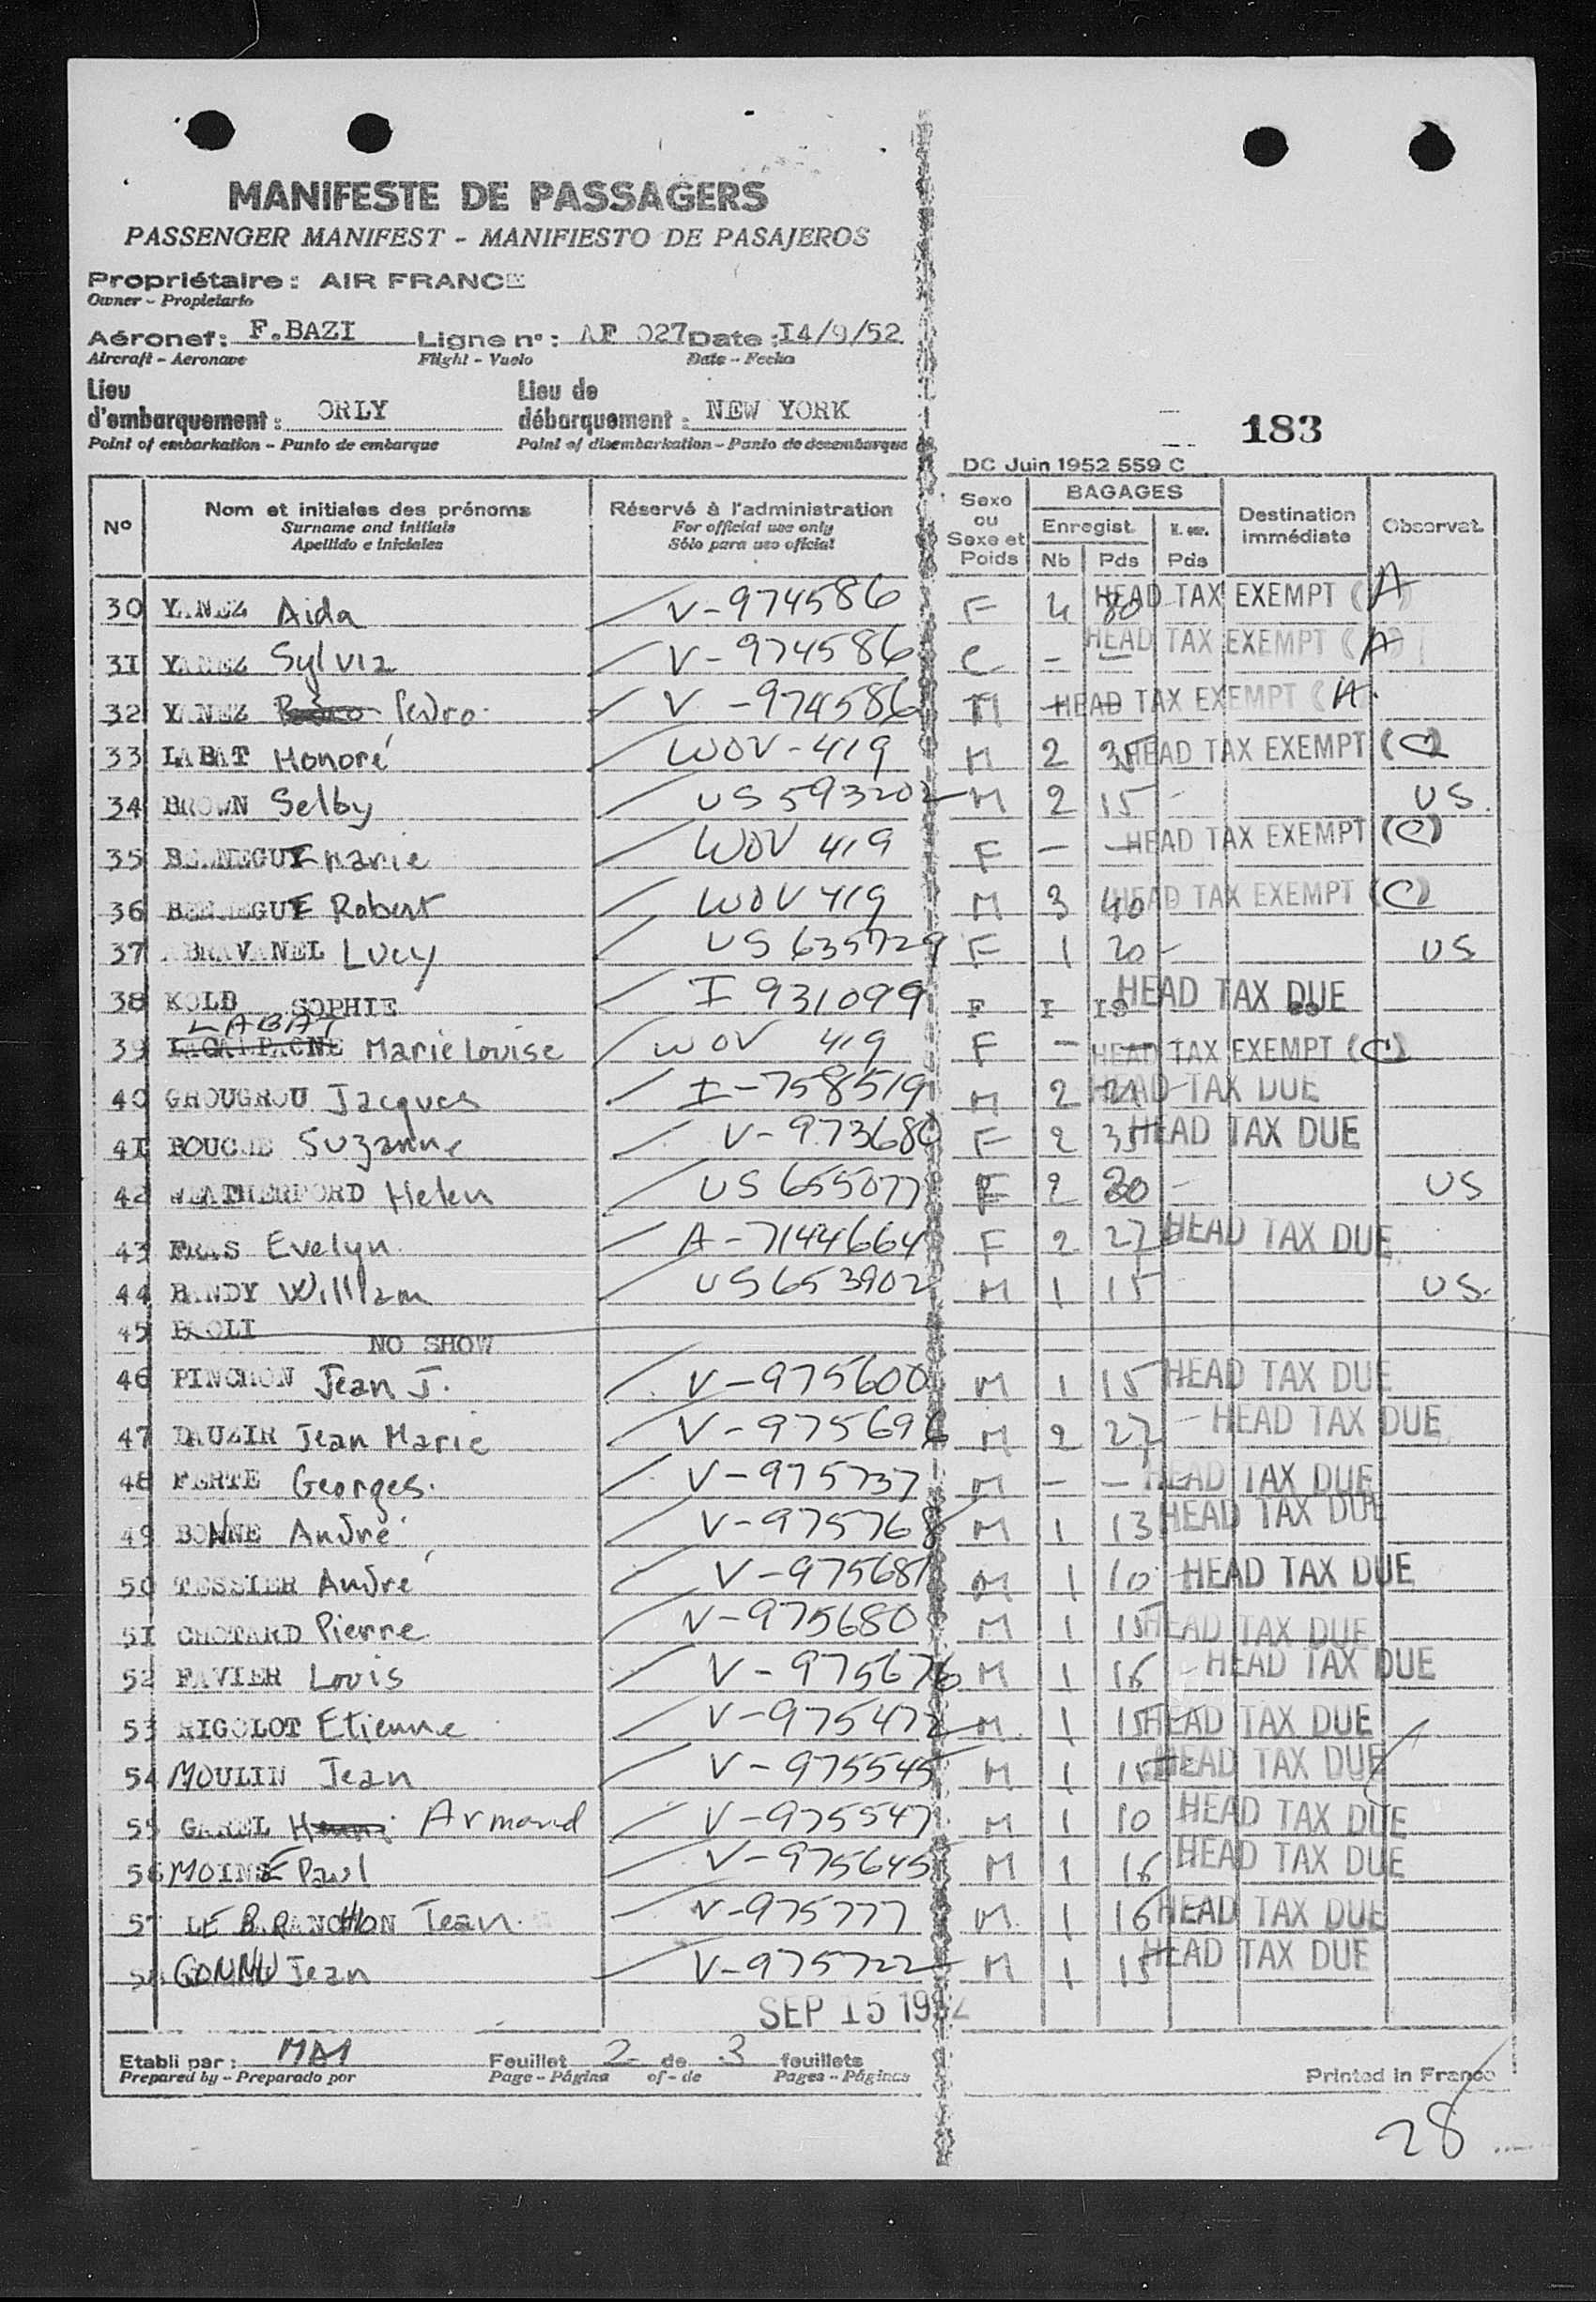 MANIFESTE DE PASSAGERS
PASSENGER MANIFEST - MANIFIESTO DE PASAJEROS
Propriétaire : AIR FRANCE
Owner - Propietario
Aéronef : F.BAZI Ligne n° : AF 027 Date : I4/9/52
Aircraft - Aeronave Flight - Vuelo Date - Fecha
Lieu d'embarquement : ORLY Lieu de débarquement : NEW YORK
Point of embarkation - Punto de embarque Point of disembarkation - Punto de desembarque
183
DC Juin 1952 559 C
N° Nom et initiales des prénoms Réservé à l'administration Sexe ou Sexe et Poids BAGAGES Destination immédiate Observat.
Surname and initials For official use only Enregist.
Apellido e iniciales Sólo para uso oficial Nb Pds Pds
30 YANEZ Aida V-974586 F 4 80 HEAD TAX EXEMPT (A)
3I YANEZ Sylvia V-974586 C - - HEAD TAX EXEMPT (A)
32 YANEZ Pedro V-974586 M HEAD TAX EXEMPT (A)
33 LABAT Honoré WOV-419 M 2 35 HEAD TAX EXEMPT (C)
34 BROWN Selby US 593202 M 2 15 - US.
35 Marie WOV 419 F - - HEAD TAX EXEMPT (C)
36 Robert WOV 419 M 3 40 HEAD TAX EXEMPT (C)
37 ABRAVANEL Lucy US 635729 F 1 20 - US
38 KOLB SOPHIE I 931099 F I HEAD TAX DUE
39 LABAT Marie Louise WOV 419 F - - HEAD TAX EXEMPT (C)
40 GROUGROU Jacques I-758519 M 2 21 HEAD TAX DUE
4I Suzanne V-97368 F 2 35 HEAD TAX DUE
42 WEATHERFORD Helen US 655077 F 2 20 - US
43 Evelyn A-7144664 F 2 27 HEAD TAX DUE
44 BANDY William US 653902 M 1 15 - US.
45 PAOLI NO SHOW
46 PINCHON Jean J. V-975600 M 1 15 HEAD TAX DUE
47 DAUZIR Jean Marie V-975696 M 2 27 - HEAD TAX DUE
48 FERTE Georges. V-975737 M - - HEAD TAX DUE
49 BONNE André V-975768 M 1 13 HEAD TAX DUE
50 TESSIER André V-975687 M 1 10 HEAD TAX DUE
5I CHOTARD Pierre V-975680 M 1 15 HEAD TAX DUE
52 FAVIER Louis V-975676 M 1 16 - HEAD TAX DUE
53 RIGOLOT Etienne V-975472 M 1 15 HEAD TAX DUE
54 MOULIN Jean V-975545 M 1 15 HEAD TAX DUE
55 GAREL Armand V-975547 M 1 10 HEAD TAX DUE
56 MOINSE Paul V-975645 M 1 16 HEAD TAX DUE
57 LE BRANCHON Jean V-975777 M 1 16 HEAD TAX DUE
58 GONNU Jean V-975722 M 1 15 HEAD TAX DUE
SEP 15 1952
Etabli par : MAM Feuillet 2 de 3 feuillets
Prepared by - Preparado por Page - Página of - de Pages - Páginas
Printed in France
28